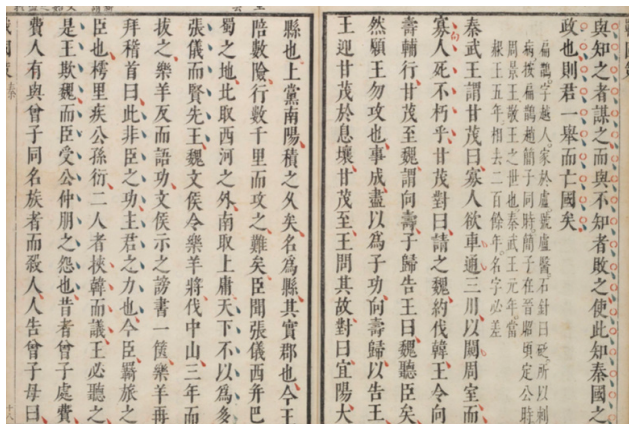 與知之者謀之而與不知者敗之使此知秦國之
政也則君一舉而亡國矣
扁鵲字越人家於盧號盧醫石針曰砭所以刺
病按扁鵲趙簡子同時簡子在晉昭頃定公時
周景王敬王之世也秦武王元年當
赧王五年相去二百餘年名字必差
秦武王謂甘茂曰寡人欲車通三川以闚周室而
寡人死不朽乎甘茂對曰請之魏約伐韓王令向
壽輔行甘茂至魏謂向壽子歸告王曰魏聽臣矣
然願王勿攻也事成盡以為子功向壽歸以告王
王迎甘茂於息壤甘茂至王問其故對曰宜陽大
縣也上黨南陽積之久矣名為縣其實郡也今王
陪數險行數千里而攻之難矣臣聞張儀西并巴
蜀之地北取西河之外南取上庸天下不以為多
張儀而賢先王魏文侯令樂羊將伐中山三年而
拔之樂羊反而語功文侯示之謗書一篋樂羊再
拜稽首曰此非臣之功主君之力也今臣羇旅之
臣也樗里疾公孫衍二人者挾韓而議王必聽之
是王欺魏而臣受公仲朋之怨也昔者曾子處費
費人有與曾子同名族者而殺人人告曾子母曰